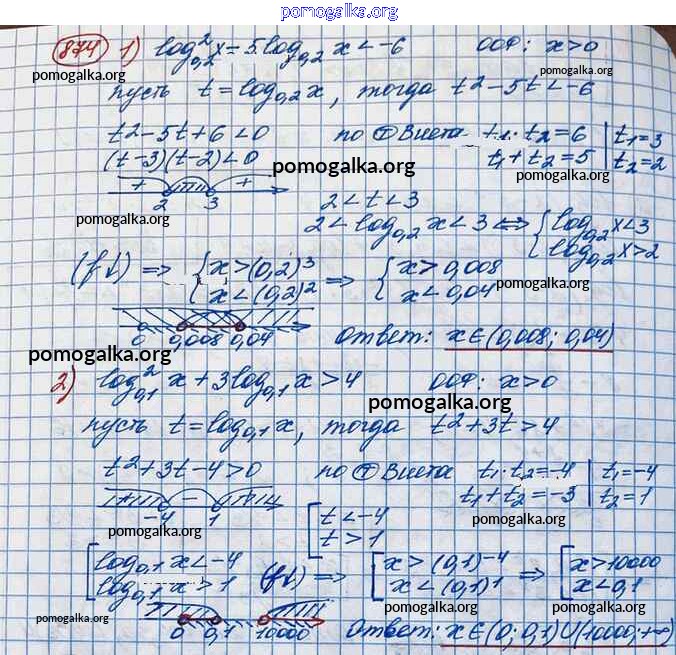 pomogalka.org
874 1) log²₀,₂ x - 5 log₀,₂ x < -6 ООФ: x > 0
pomogalka.org pomogalka.org
пусть t = log₀,₂ x, тогда t² - 5t < -6
t² - 5t + 6 < 0 по Т Виета t₁ · t₂ = 6 | t₁ = 3
(t - 3)(t - 2) < 0 t₁ + t₂ = 5 | t₂ = 2
pomogalka.org
+ +
2 3 2 < t < 3
pomogalka.org
2 < log₀,₂ x < 3 ⟺ { log₀,₂ x < 3
log₀,₂ x > 2
(f↓) ⟹ { x > (0,2)³ ⟹ { x > 0,008
x < (0,2)² x < 0,04
pomogalka.org
0 0,008 0,04 Ответ: x ∈ (0,008; 0,04)
pomogalka.org
2) log²₀,₁ x + 3 log₀,₁ x > 4 ООФ: x > 0
pomogalka.org
пусть t = log₀,₁ x, тогда t² + 3t > 4
t² + 3t - 4 > 0 по Т Виета t₁ · t₂ = -4 | t₁ = -4
t₁ + t₂ = -3 | t₂ = 1
+ - +
-4 1 [ t < -4
t > 1
pomogalka.org pomogalka.org
[ log₀,₁ x < -4 (f↓) ⟹ [ x > (0,1)⁻⁴ ⟹ [ x > 10000
log₀,₁ x > 1 x < (0,1)¹ x < 0,1
pomogalka.org pomogalka.org pomogalka.org
0 0,1 10000 Ответ: x ∈ (0; 0,1) U (10000; +∞)